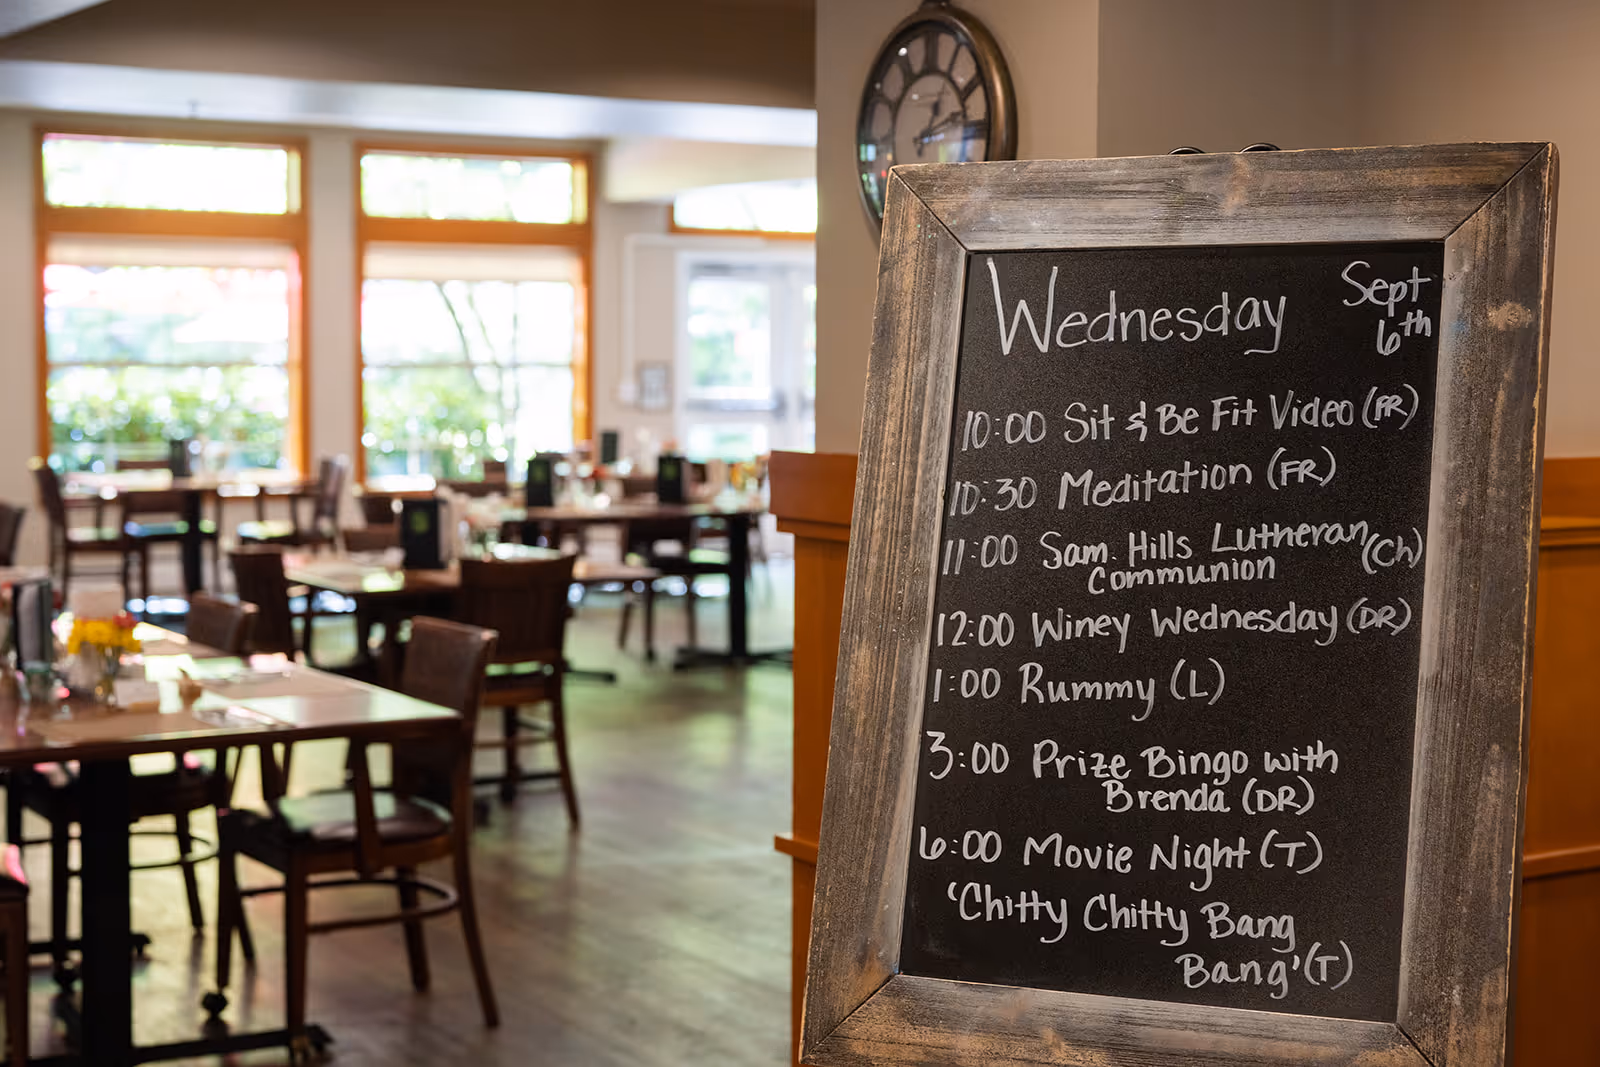 Wednesday Sept 6th
10:00 Sit & Be Fit Video (FR)
10:30 Meditation (FR)
11:00 Sam. Hills Lutheran (Ch)
Communion
12:00 Winey Wednesday (DR)
1:00 Rummy (L)
3:00 Prize Bingo with
Brenda (DR)
6:00 Movie Night (T)
'Chitty Chitty Bang
Bang' (T)